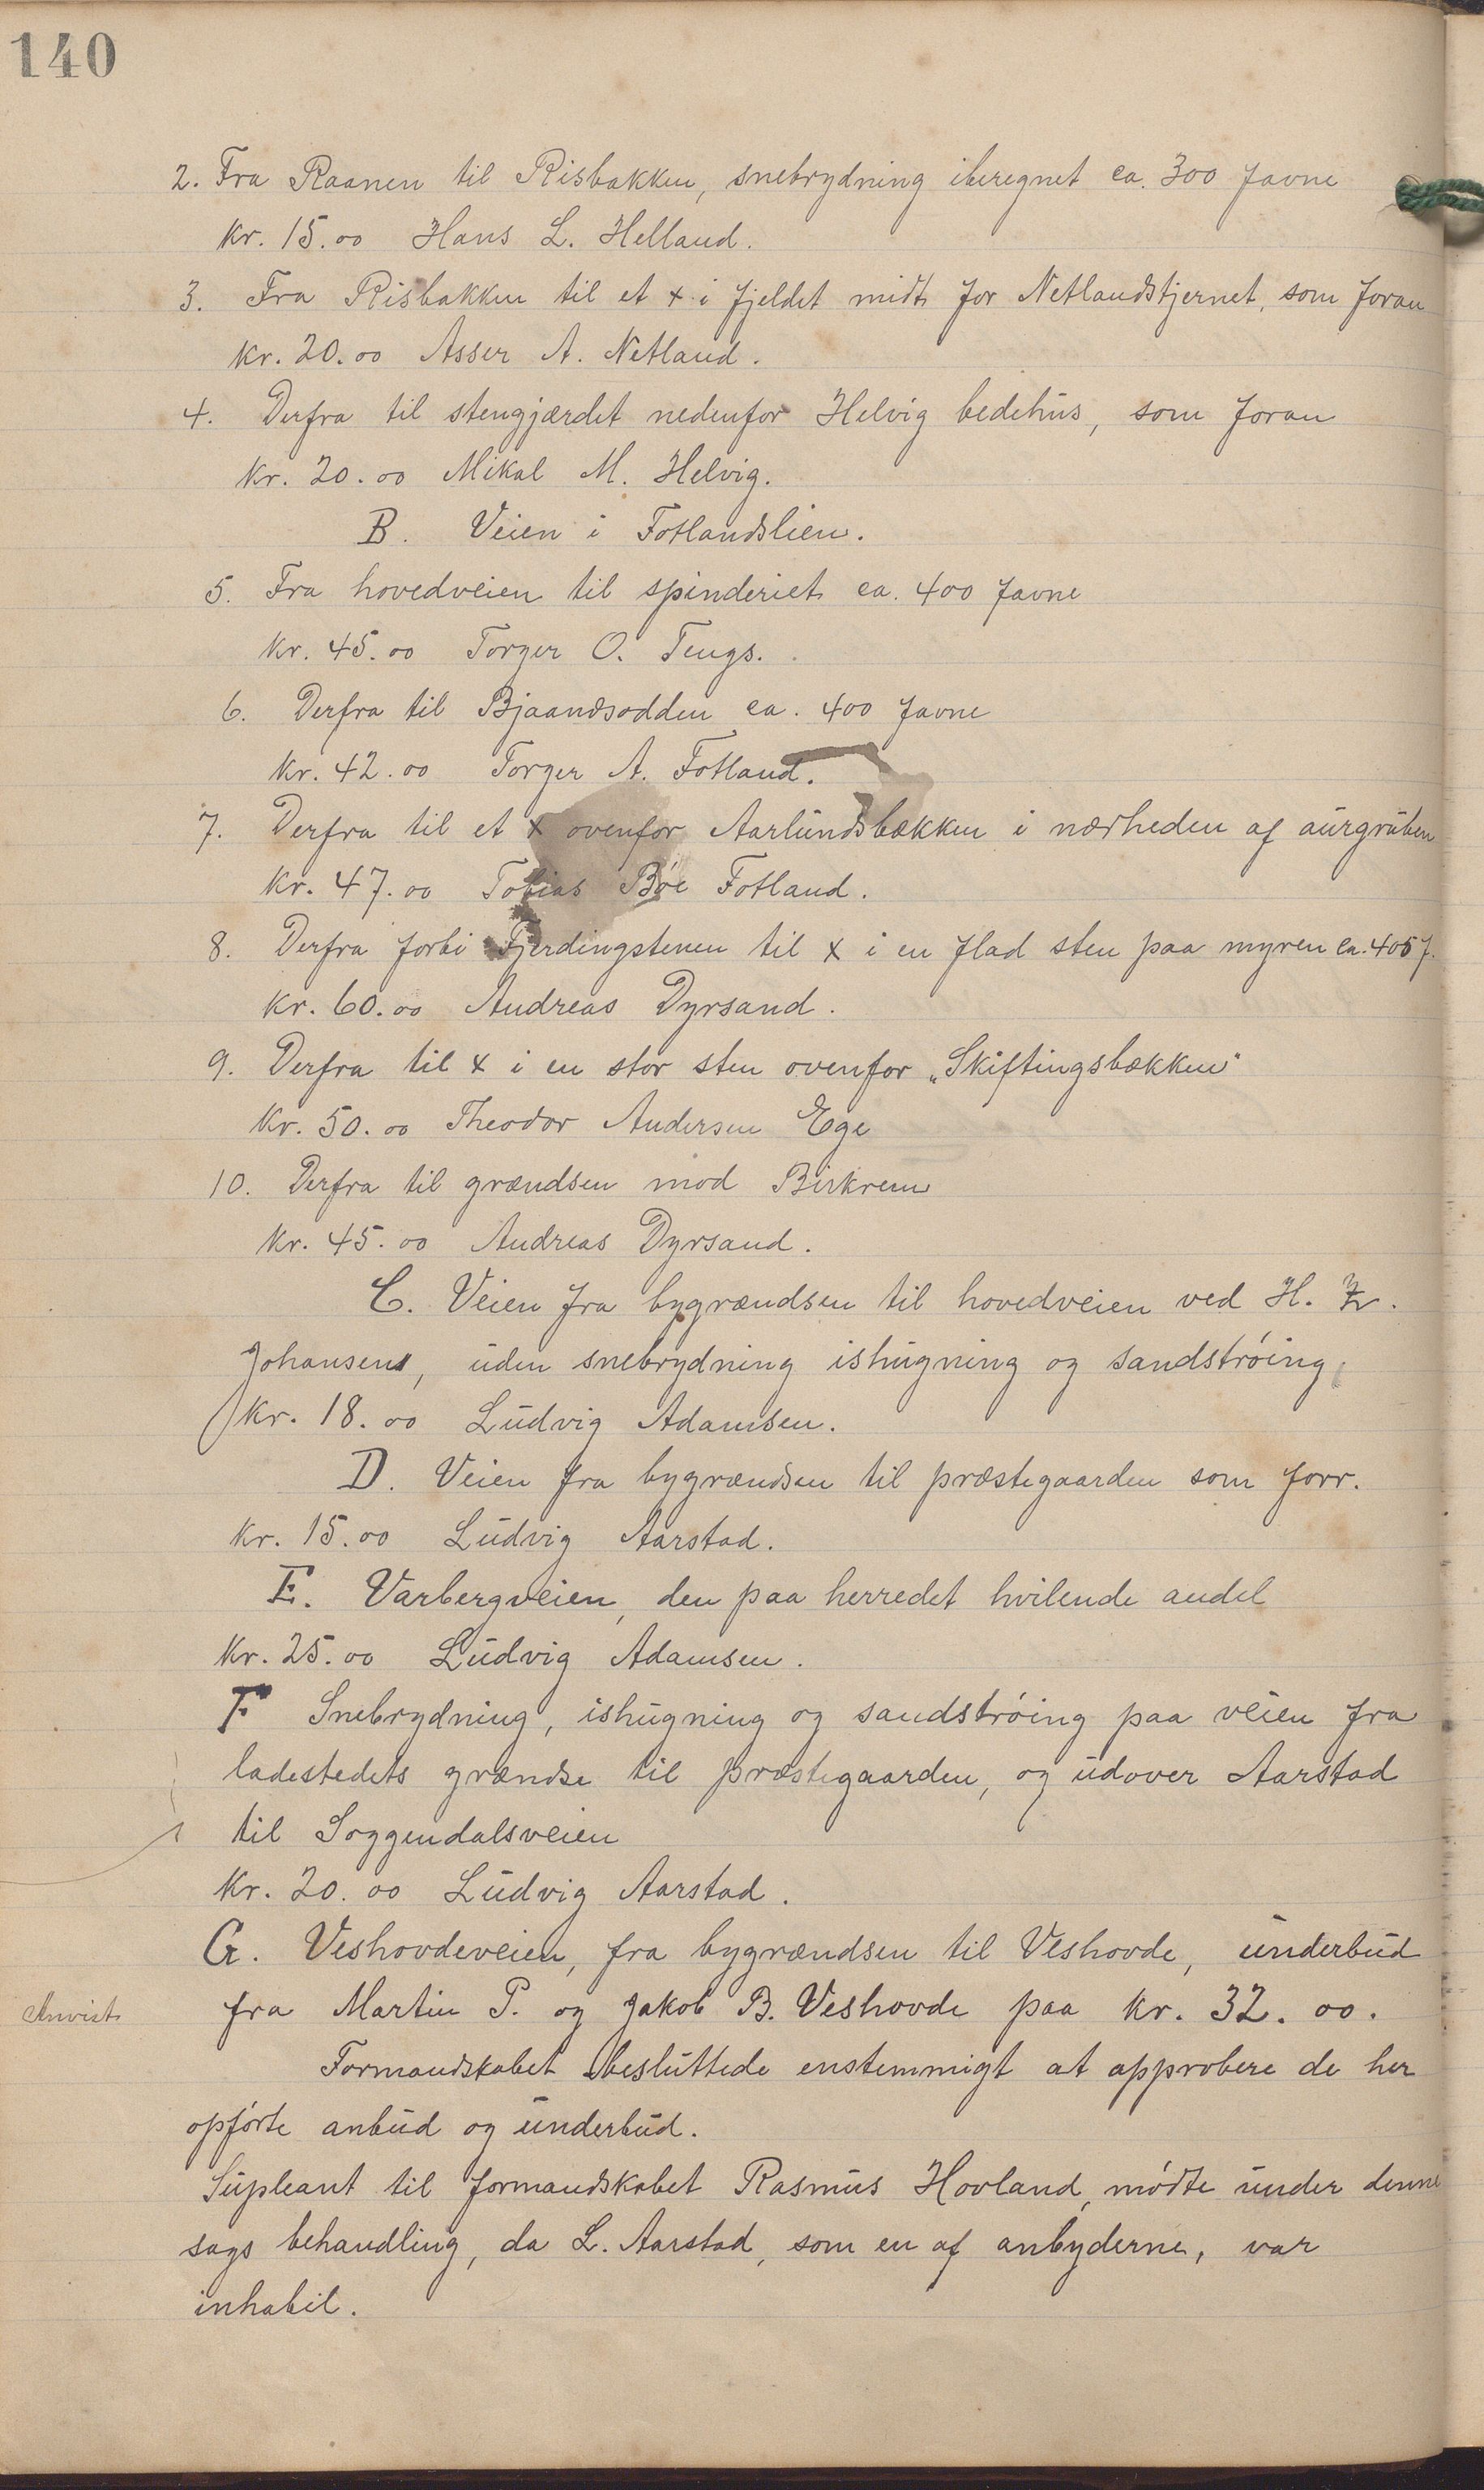 140
2. Fra Raanen til Risbakken, snebrydning iberegnet ca. 300 favne
kr. 15.00 Hans L. Helland.
3. Fra Risbakken til et x i fjeldet midt for Netlandstjernet, som foran
kr. 20.00 Asser A. Netland.
4. Derfra til stengjærdet nedenfor Helvig bedehus, som foran
kr. 20.00 Mikal M. Helvig.
B. Veien i Fotlandslien.
5. Fra hovedveien til spinderiet ca. 400 favne
kr. 45.00 Torger O. Tengs.
6. Derfra til Bjaandsodden ca. 400 favne
kr. 42.00 Torger A. Fotland.
7. Derfra til et x ovenfor Aarlundsbækken i nærheden af aurgruben
kr. 47.00 Tobias Bøe Fotland.
8. Derfra forbi Fjerdingstenen til x i en flad sten paa myren ca. 405 f.
kr. 60.00 Andreas Dyrsand.
9. Derfra til x i en stor sten ovenfor „Skiftingsbækken"
kr. 50.00 Theodor Andersen Ege
10. Derfra til grændsen mod Birkrem
kr. 45.00 Andreas Dyrsand.
C. Veien fra bygrændsen til hovedveien ved H.
Johansens, uden snebrydning ishugning og sandstrøing.
kr. 18.00 Ludvig Adamsen.
D. Veien fra bygrændsen til præstegaarden som forr.
kr. 15.00 Ludvig Aarstad.
E. Varbergveien, den paa herredet hvilende andel
kr. 25.00 Ludvig Adamsen.
F Snebrydning, ishugning og sandstrøing paa veien fra
ladestedets grændse til præstegaarden, og udover Aarstad
til Soggendalsveien
kr. 20.00 Ludvig Aarstad.
G. Veshovdeveien, fra bygrændsen til Veshovde, underbud
Anvist fra Martin P. og Jakob B. Veshovde paa kr. 32.00.
Formandskabet besluttede enstemmigt at approbere de her
opførte anbud og underbud.
Supleant til formandskabet Rasmus Hovland, mødte under denne
sags behandling, da L. Aarstad, som en af anbyderne, var
inhabil.